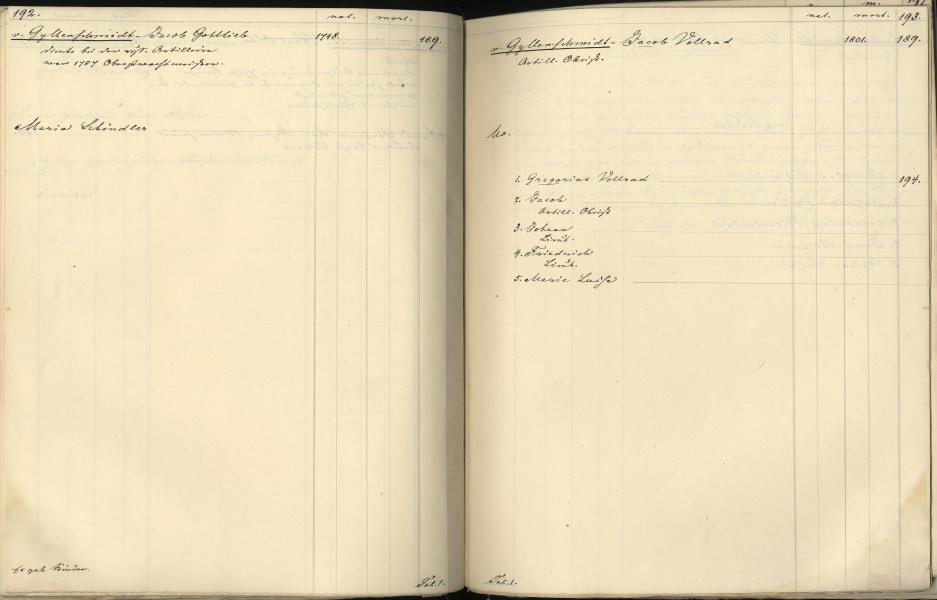 192. nat. mort.
v. Gyllenschmidt - Jacob Gottlieb 1748. 189.
diente bei der russ. Artillerie
war 1787 Oberstwachtmeister.
Maria Schindler
Es gab Kinder.
Tab. 1.
m.
nat. mort. 193.
v. Gyllenschmidt - Jacob Vollrad 1801. 189.
Artill. Obrist.
Ux.
1. Gregorius Vollrad 194.
2. Jacob
Artill. Obrist
3. Johann
Lieut.
4. Friederich
Lieut.
5. Marie Luise
Tab. 1.